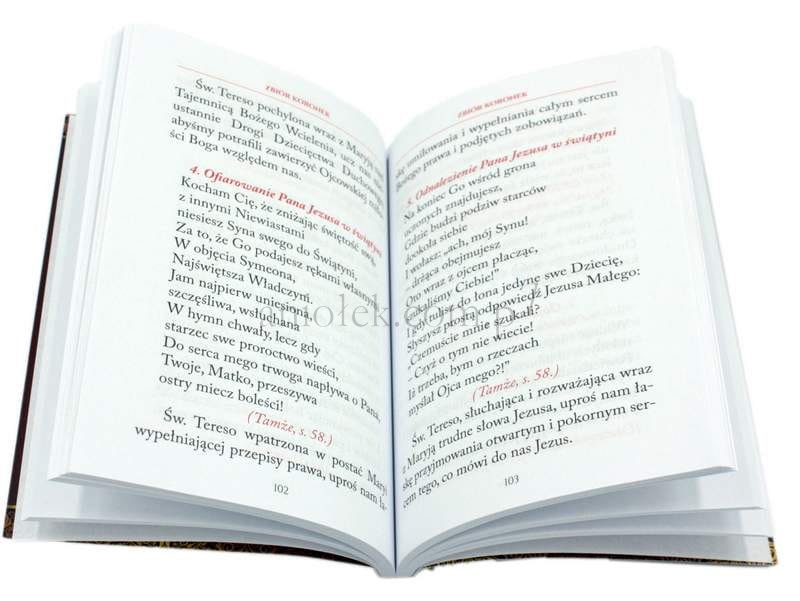 ZBIÓR KORONEK
Św. Tereso pochylona wraz z Maryją nad
Tajemnicą Bożego Wcielenia, ucz nas
ustannie Drogi Dziecięctwa Duchowego,
abyśmy potrafili zawierzyć Ojcowskiej
ści Boga względem nas.
4. Ofiarowanie Pana Jezusa w świątyni
Kocham Cię, że zniżając świętość swą,
z innymi Niewiastami
niesiesz Syna swego do Świątyni,
Za to, że Go podajesz rękami własnymi
W objęcia Symeona,
Najświętsza Władczyni.
Jam najpierw uniesiona,
szczęśliwa, wsłuchana
W hymn chwały, lecz gdy
starzec swe proroctwo wieści,
Do serca mego trwoga napływa o Pana,
Twoje, Matko, przeszywa
ostry miecz boleści!
(Tamże, s. 58.)
Św. Tereso wpatrzona w postać Maryi
wypełniającej przepisy prawa, uproś nam ła-
102
ZBIÓR KORONEK
skę umiłowania i wypełniania całym sercem
Bożego prawa i podjętych zobowiązań.
5. Odnalezienie Pana Jezusa w świątyni
Na koniec Go wśród grona
uczonych znajdujesz,
Gdzie budzi podziw starców
dookoła siebie
I wołasz: „ach, mój Synu!
– drżąca obejmujesz
Oto wraz z ojcem płacząc,
szukaliśmy Ciebie!”
I gdy tak do łona jedyne swe Dziecię,
Słyszysz prostą odpowiedź Jezusa Małego:
„Czemuście mnie szukali?
– Czyż o tym nie wiecie!
Iż trzeba, bym o rzeczach
myślał Ojca mego?!”
(Tamże, s. 58.)
Św. Tereso, słuchająca i rozważająca wraz
z Maryją trudne słowa Jezusa, uproś nam ła-
skę przyjmowania otwartym i pokornym ser-
cem tego, co mówi do nas Jezus.
103
aniołek.com.pl